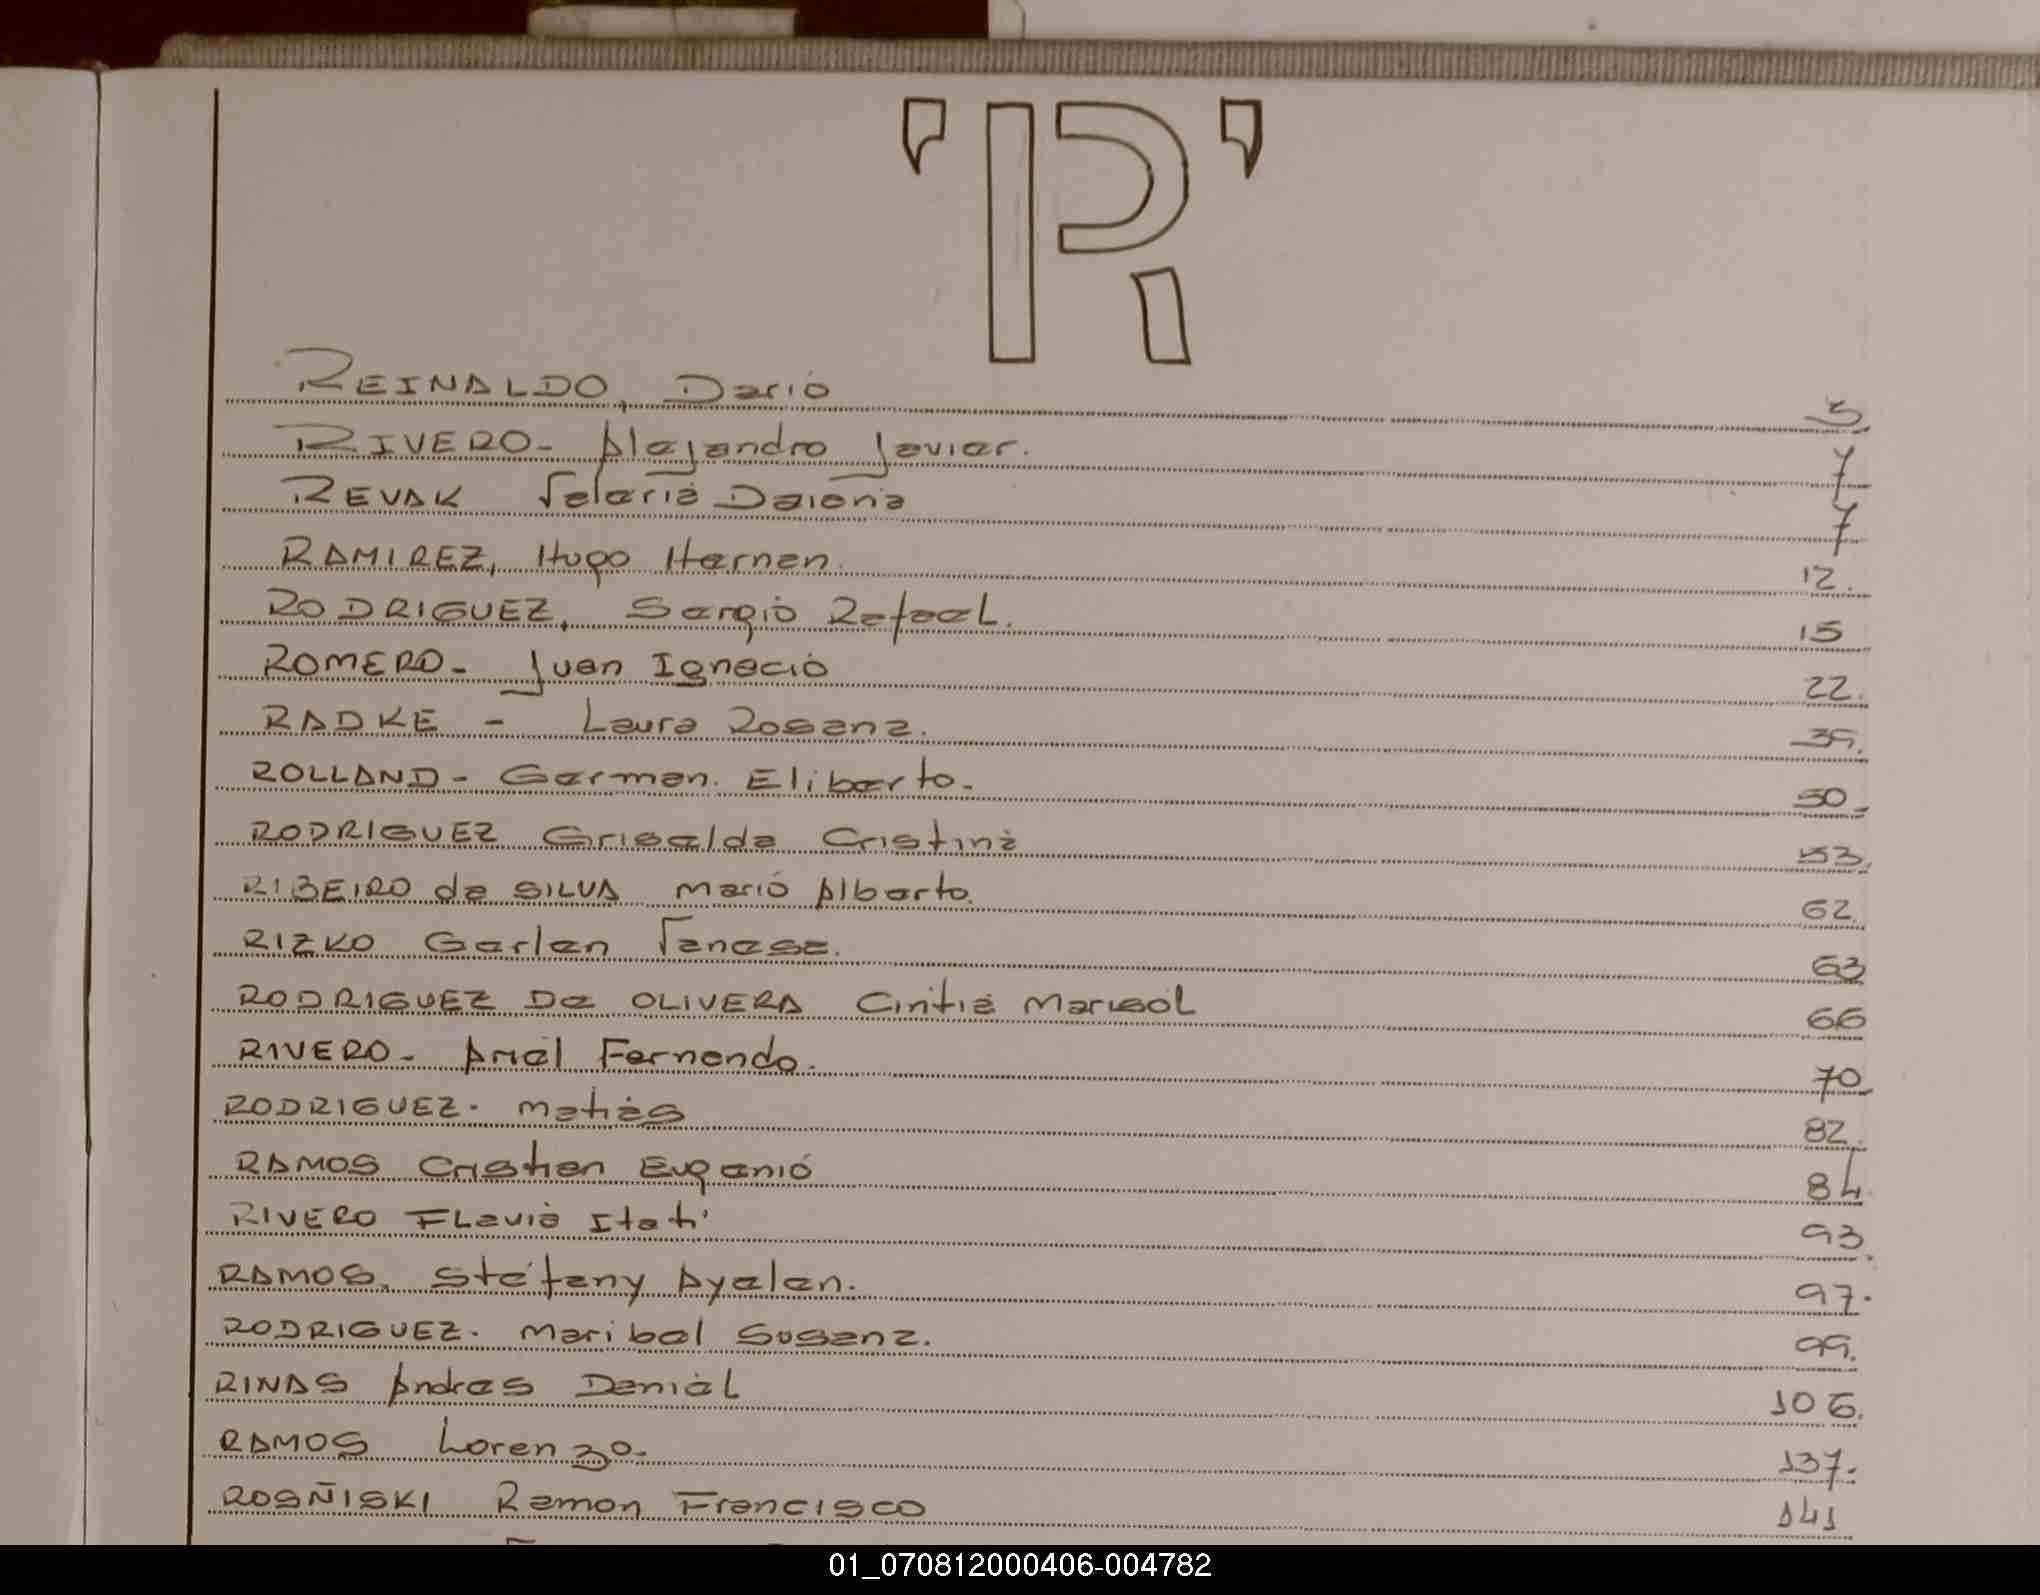 'R'
REINALDO, Dario 5
RIVERO- Alejandro Javier. 7
REVAK Valeria Daiana 7
RAMIREZ, Hugo Hernan. 12.
RODRIGUEZ, Sergio Rafael. 15
ROMERO- Juan Ignacio 22.
RADKE - Laura Rosana. 39.
ROLLAND- German. Eliberto. 50.
RODRIGUEZ Griselda Cristina 53.
RIBEIRO da SILVA Mario Alberto. 62.
RIZKO Garlen Vanesa. 63
RODRIGUEZ De OLIVERA Cintia Marisol 66
RIVERO- Ariel Fernando. 70
RODRIGUEZ. Matias 82.
RAMOS Cristian Eugenio 84
RIVERO Flavia Itati 93.
RAMOS. Stefany Ayelen. 97.
RODRIGUEZ. Maribel Susana. 99.
RINAS Andres Daniel 106.
RAMOS Lorenzo. 137.
ROSÑISKI Ramon Francisco 141
01_070812000406-004782